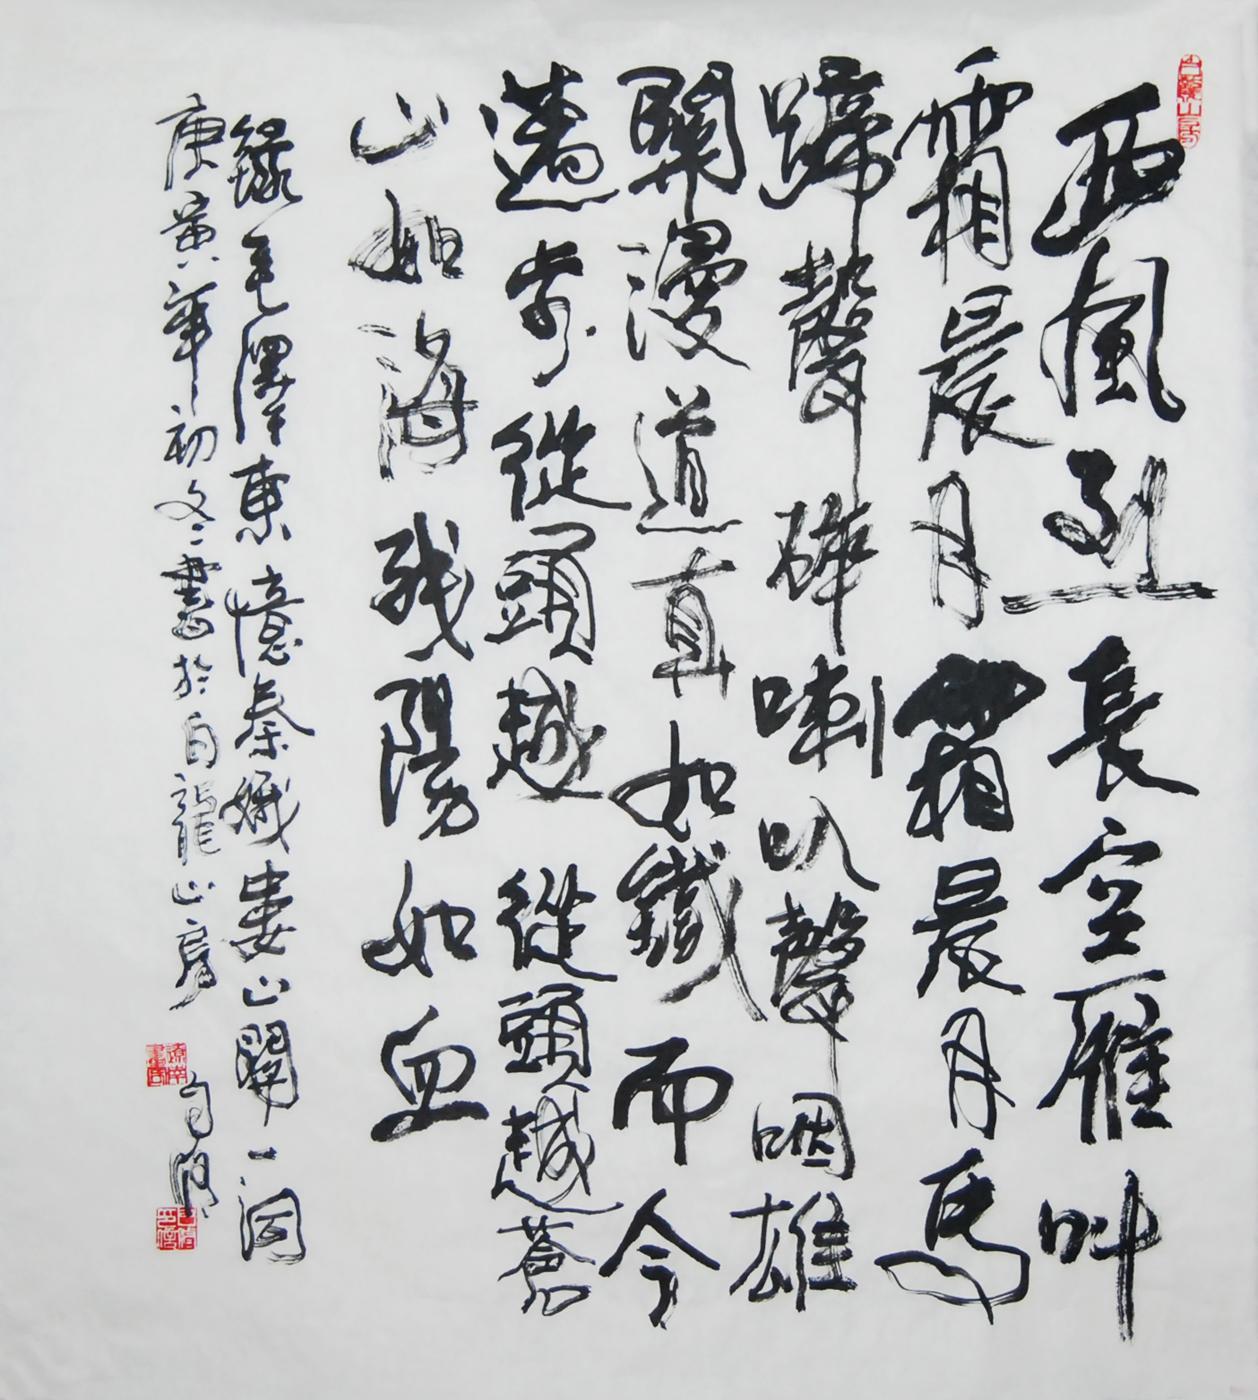 西風烈長空雁叫
霜晨月霜晨月馬
蹄聲碎喇叭聲咽雄
關漫道真如鐵而今
邁步從頭越從頭越蒼
山如海残陽如血
錄毛澤東憶秦娥婁山關一詞
庚寅年初冬書於白龍山房